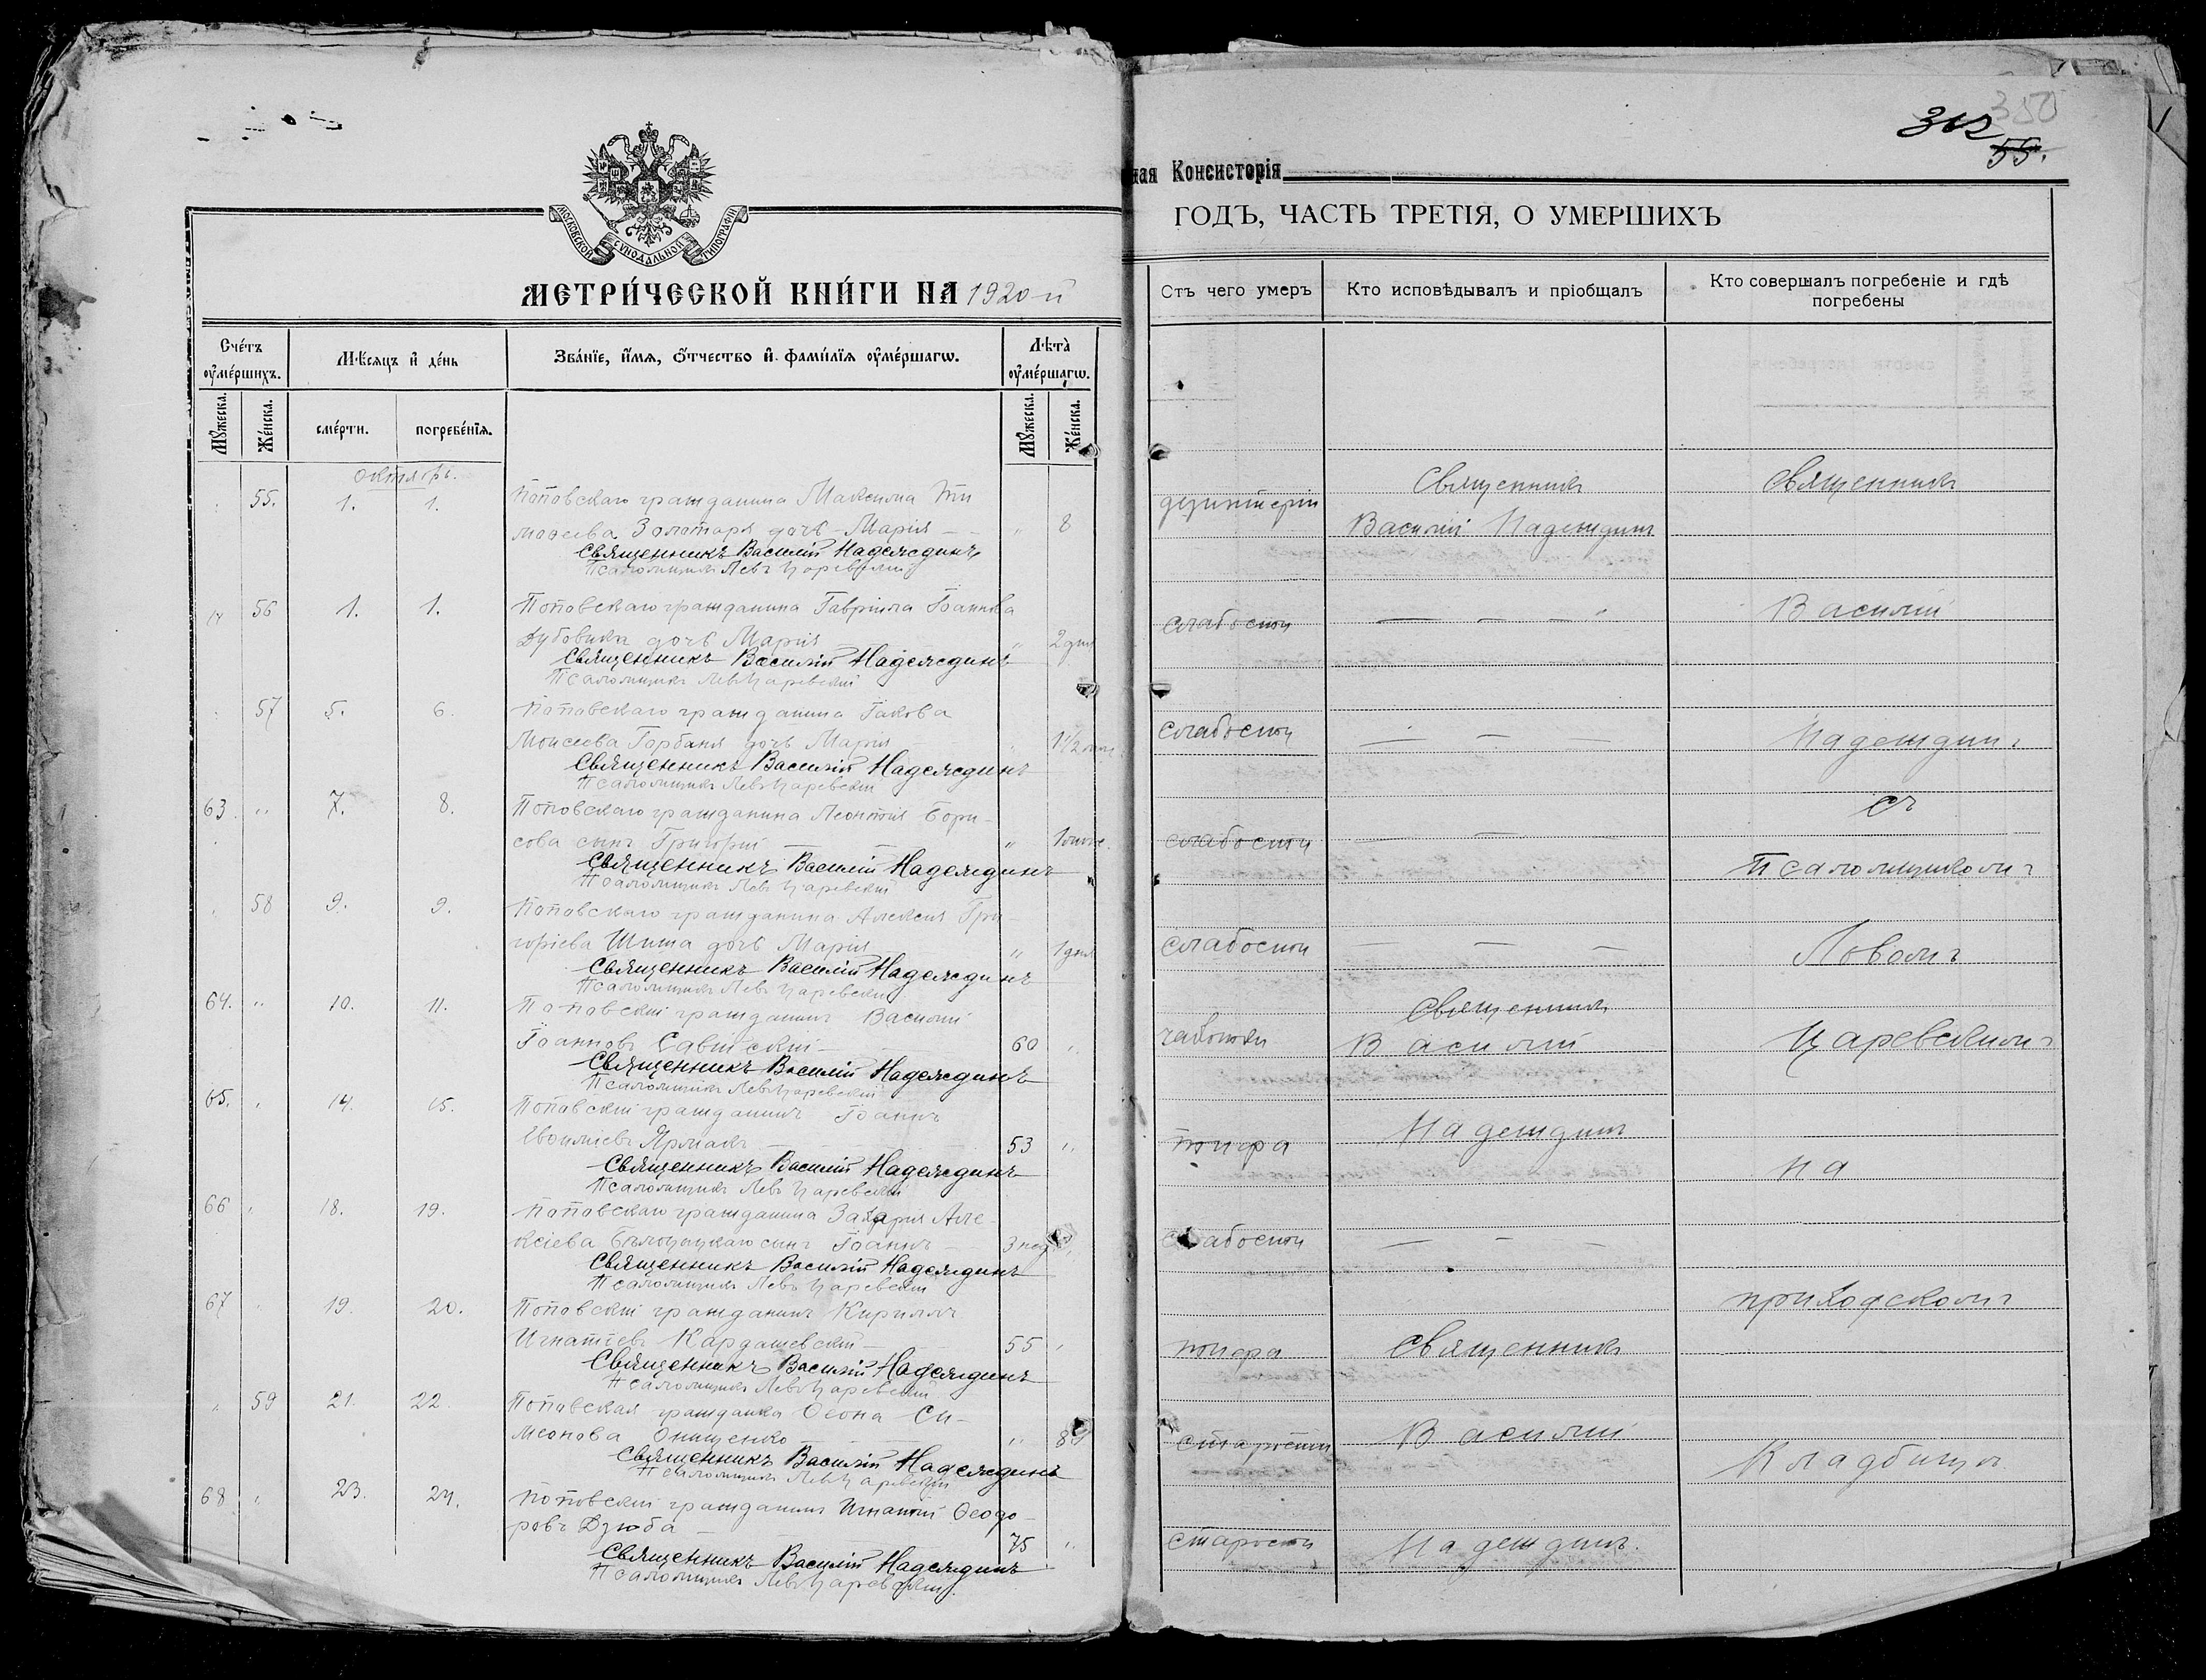 350
312
55.
ная Консисторія
МОСКОВСКОЙ СѴНОДАЛЬНОЙ ТИПОГРАФІИ
МЕТРИ́ЧЕСКОЙ КНИ́ГИ НА 1920-й
ГОДЪ, ЧАСТЬ ТРЕТІЯ, О УМЕРШИХЪ
Сче́тъ оумéршихъ.
Мѣсяцъ и дéнь
Звáнїе, и́мя, о́тчество и фамѝлїя оумéршагѡ.
Лѣта̀ оумéршагѡ.
Мꙋ́жеска.
Жéнска.
смéрти.
погребéнїя.
Мꙋ́жеска.
Жéнска.
Отъ чего умеръ
Кто исповѣдывалъ и пріобщалъ
Кто совершалъ погребеніе и гдѣ погребены
Октябрь.
55. 1. 1. Поповскаго гражданина Максима Ти
моѳеева Золотаря дочь Марія — " 8
Священникъ Василій Надеждинъ
Псаломщикъ Левъ Царевскій
56 1. 1. Поповскаго гражданина Гавріила Іоаннова
Дубовика дочь Марія " 2 дня
Священникъ Василій Надеждинъ
Псаломщикъ Левъ Царевскій
57 5. 6. Поповскаго гражданина Іакова
Моисеева Горбаня дочь Марія 1 1/2
Священникъ Василій Надеждинъ
Псаломщикъ Левъ Царевскій
63. " 7. 8. Поповскаго гражданина Леонтія Бори-
сова сынъ Григорій — "
Священникъ Василій Надеждинъ
Псаломщикъ Левъ Царевскій
58 9. 9. Поповскаго гражданина Алексія Гри-
горіева Шита дочь Марія " 1 дня
Священникъ Василій Надеждинъ
Псаломщикъ Левъ Царевскій
64. " 10. 11. Поповскій гражданинъ Василій
Іоанновъ Савицкій 60
Священникъ Василій Надеждинъ
Псаломщикъ Левъ Царевскій
65. 14. 15. Поповскій гражданинъ Іоаннъ
Ярмакъ 53 "
Священникъ Василій Надеждинъ
Псаломщикъ Левъ Царевскій
66 18. 19. Поповскаго гражданина Захарія Але-
ксіева сынъ Іоаннъ — 3 нед.
Священникъ Василій Надеждинъ
Псаломщикъ Левъ Царевскій
67 19. 20. Поповскій гражданинъ Кириллъ
Игнатіевъ Кардашевскій 55
Священникъ Василій Надеждинъ
Псаломщикъ Левъ Царевскій
59 21. 22. Поповская гражданка Си-
меонова Онищенко "
Священникъ Василій Надеждинъ
Псаломщикъ Левъ Царевскій
68 23. 24. Поповскій гражданинъ Игнатій Ѳеодо-
ровъ Дзюба — 75 "
Священникъ Василій Надеждинъ
Псаломщикъ Левъ Царевскій
дизинтеріи
слабости
слабости
слабости
слабости
чахотки
тифа
слабости
тифа
старости
старости
Священникъ
Василій Надеждинъ
Священникъ
Василій
Надеждинъ
Священникъ
Василій
Надеждинъ.
Священникъ
Василій
Надеждинъ
съ
Псаломщикомъ
Львомъ
Царевскимъ
на
приходскомъ
Кладбищѣ